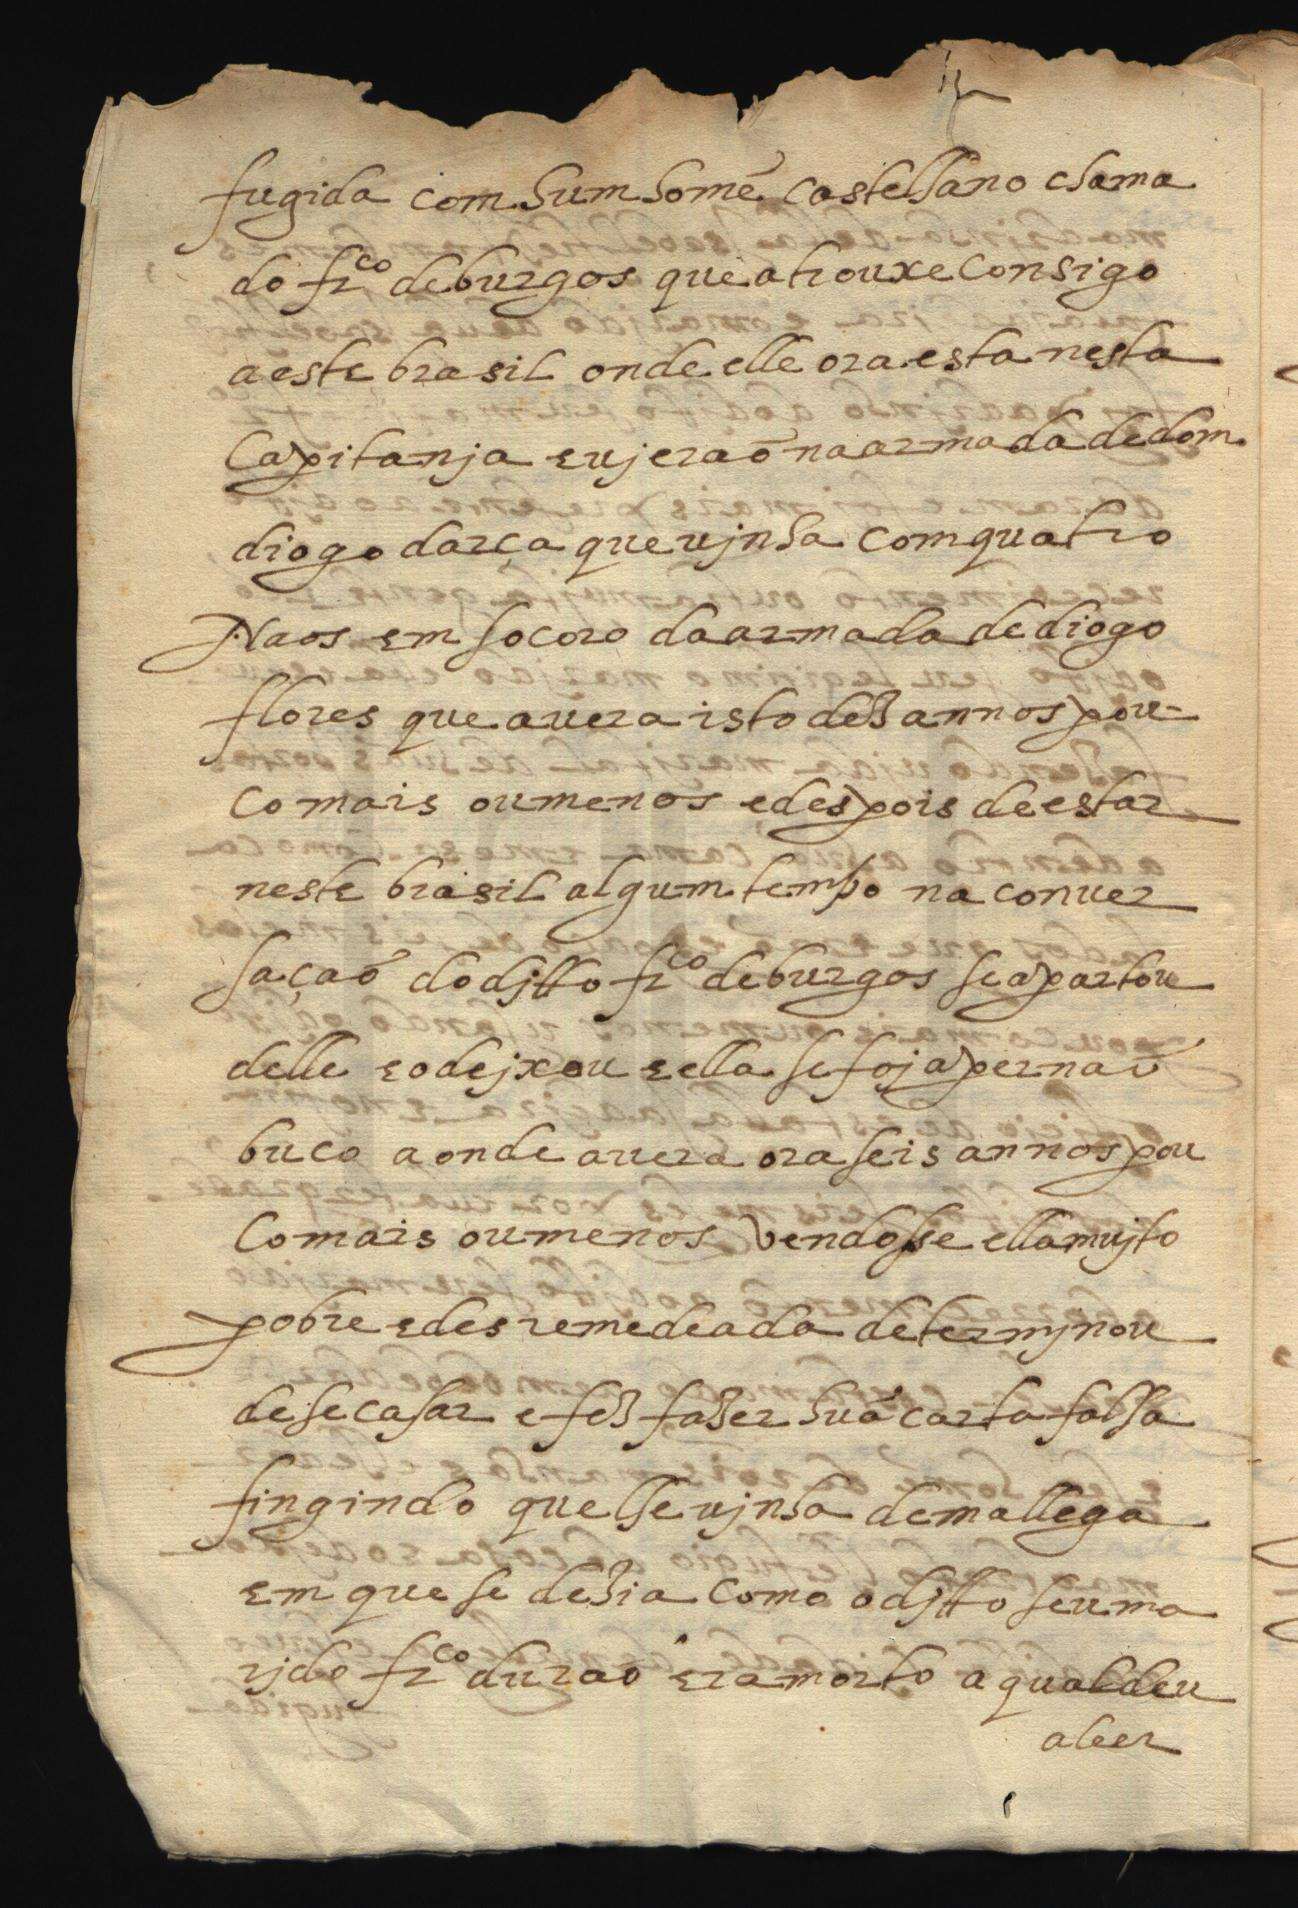 fugida com hum homẽ castelhano chama
do frco de burgos que a trouxe consigo
a este brasil onde elle ora esta nesta
Capitanja e vjeraõ na armada de dom
diogo darca que vjnha com quatro
Naos em socoro da armada de diogo
flores que avera isto dez annos pou
co mais ou menos e despois de estar
neste brasil algum tempo na conver
saçaõ do djtto frco de burgos se apartou
delle e o dejxou e ella se foj a pernaũ
buco aonde avera ora seis annos pou
Co mais ou menos vendosse ella mujto
pobre e desremedeada determjnou
de se casar e fez fazer huã carta falsa
fingindo que lhe vjnha de mallega
em que se dezia como o djtto seu ma
rjdo frco duraõ era morto a qual deu
a leer